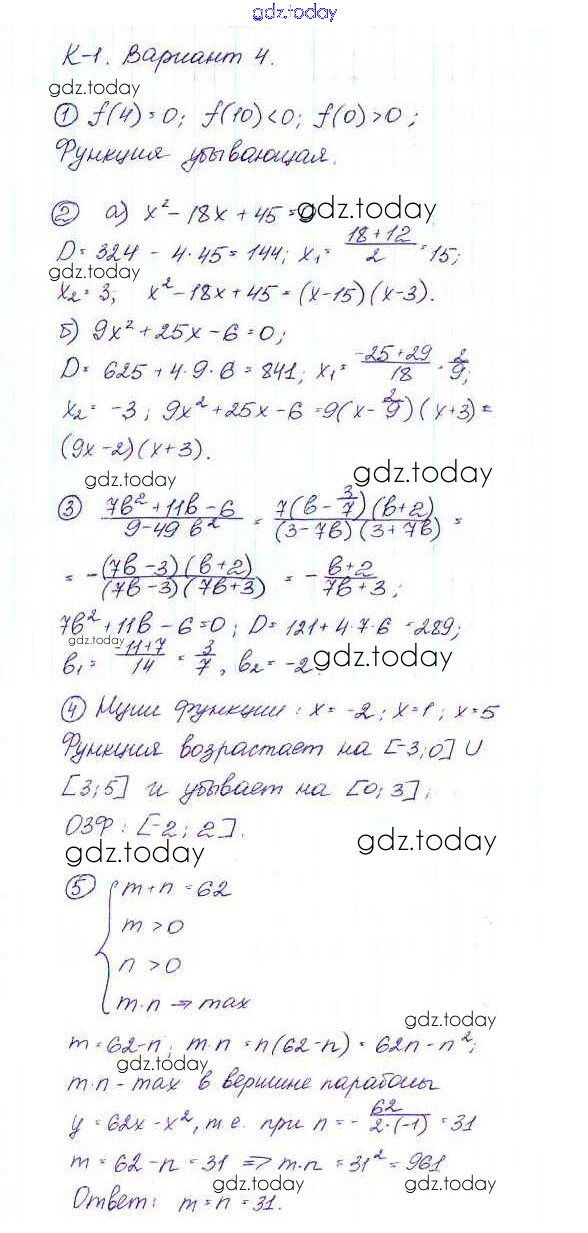 gdz.today
К-1. Вариант 4.
gdz.today
① f(4)=0; f(10)<0; f(0)>0;
Функция убывающая.
② а) x² - 18x + 45 = gdz.today
D = 324 - 4·45 = 144; x₁ = (18+12)/2 = 15;
gdz.today
x₂ = 3; x² - 18x + 45 = (x-15)(x-3).
б) 9x² + 25x - 6 = 0;
D = 625 + 4·9·6 = 841; x₁ = (-25+29)/18 = 2/9;
x₂ = -3; 9x² + 25x - 6 = 9(x - 2/9)(x+3) =
(9x-2)(x+3).
gdz.today gdz.today
③ (7b² + 11b - 6)/(9-49b²) = 7(b - 3/7)(b+2)/(3-7b)(3+7b) =
= -(7b-3)(b+2)/(7b-3)(7b+3) = -(b+2)/(7b+3);
7b² + 11b - 6 = 0; D = 121 + 4·7·6 = 289;
gdz.today
b₁ = (-11+7)/14 = 3/7, b₂ = -2 gdz.today
④ Нули функции: x = -2; x = 1; x = 5
Функция возрастает на [-3; 0] U
[3; 5] и убывает на [0; 3];
ОЗФ: [-2; 2].
gdz.today gdz.today
⑤ { m+n = 62
m > 0
n > 0
m·n → max
gdz.today
m = 62-n; m·n = n(62-n) = 62n - n²;
gdz.today
m·n - max в вершине параболы
y = 62x - x², т.е. при n = - 62/(2·(-1)) = 31
m = 62 - n = 31 => m·n = 31² = 961
gdz.today gdz.today
Ответ: m = n = 31.